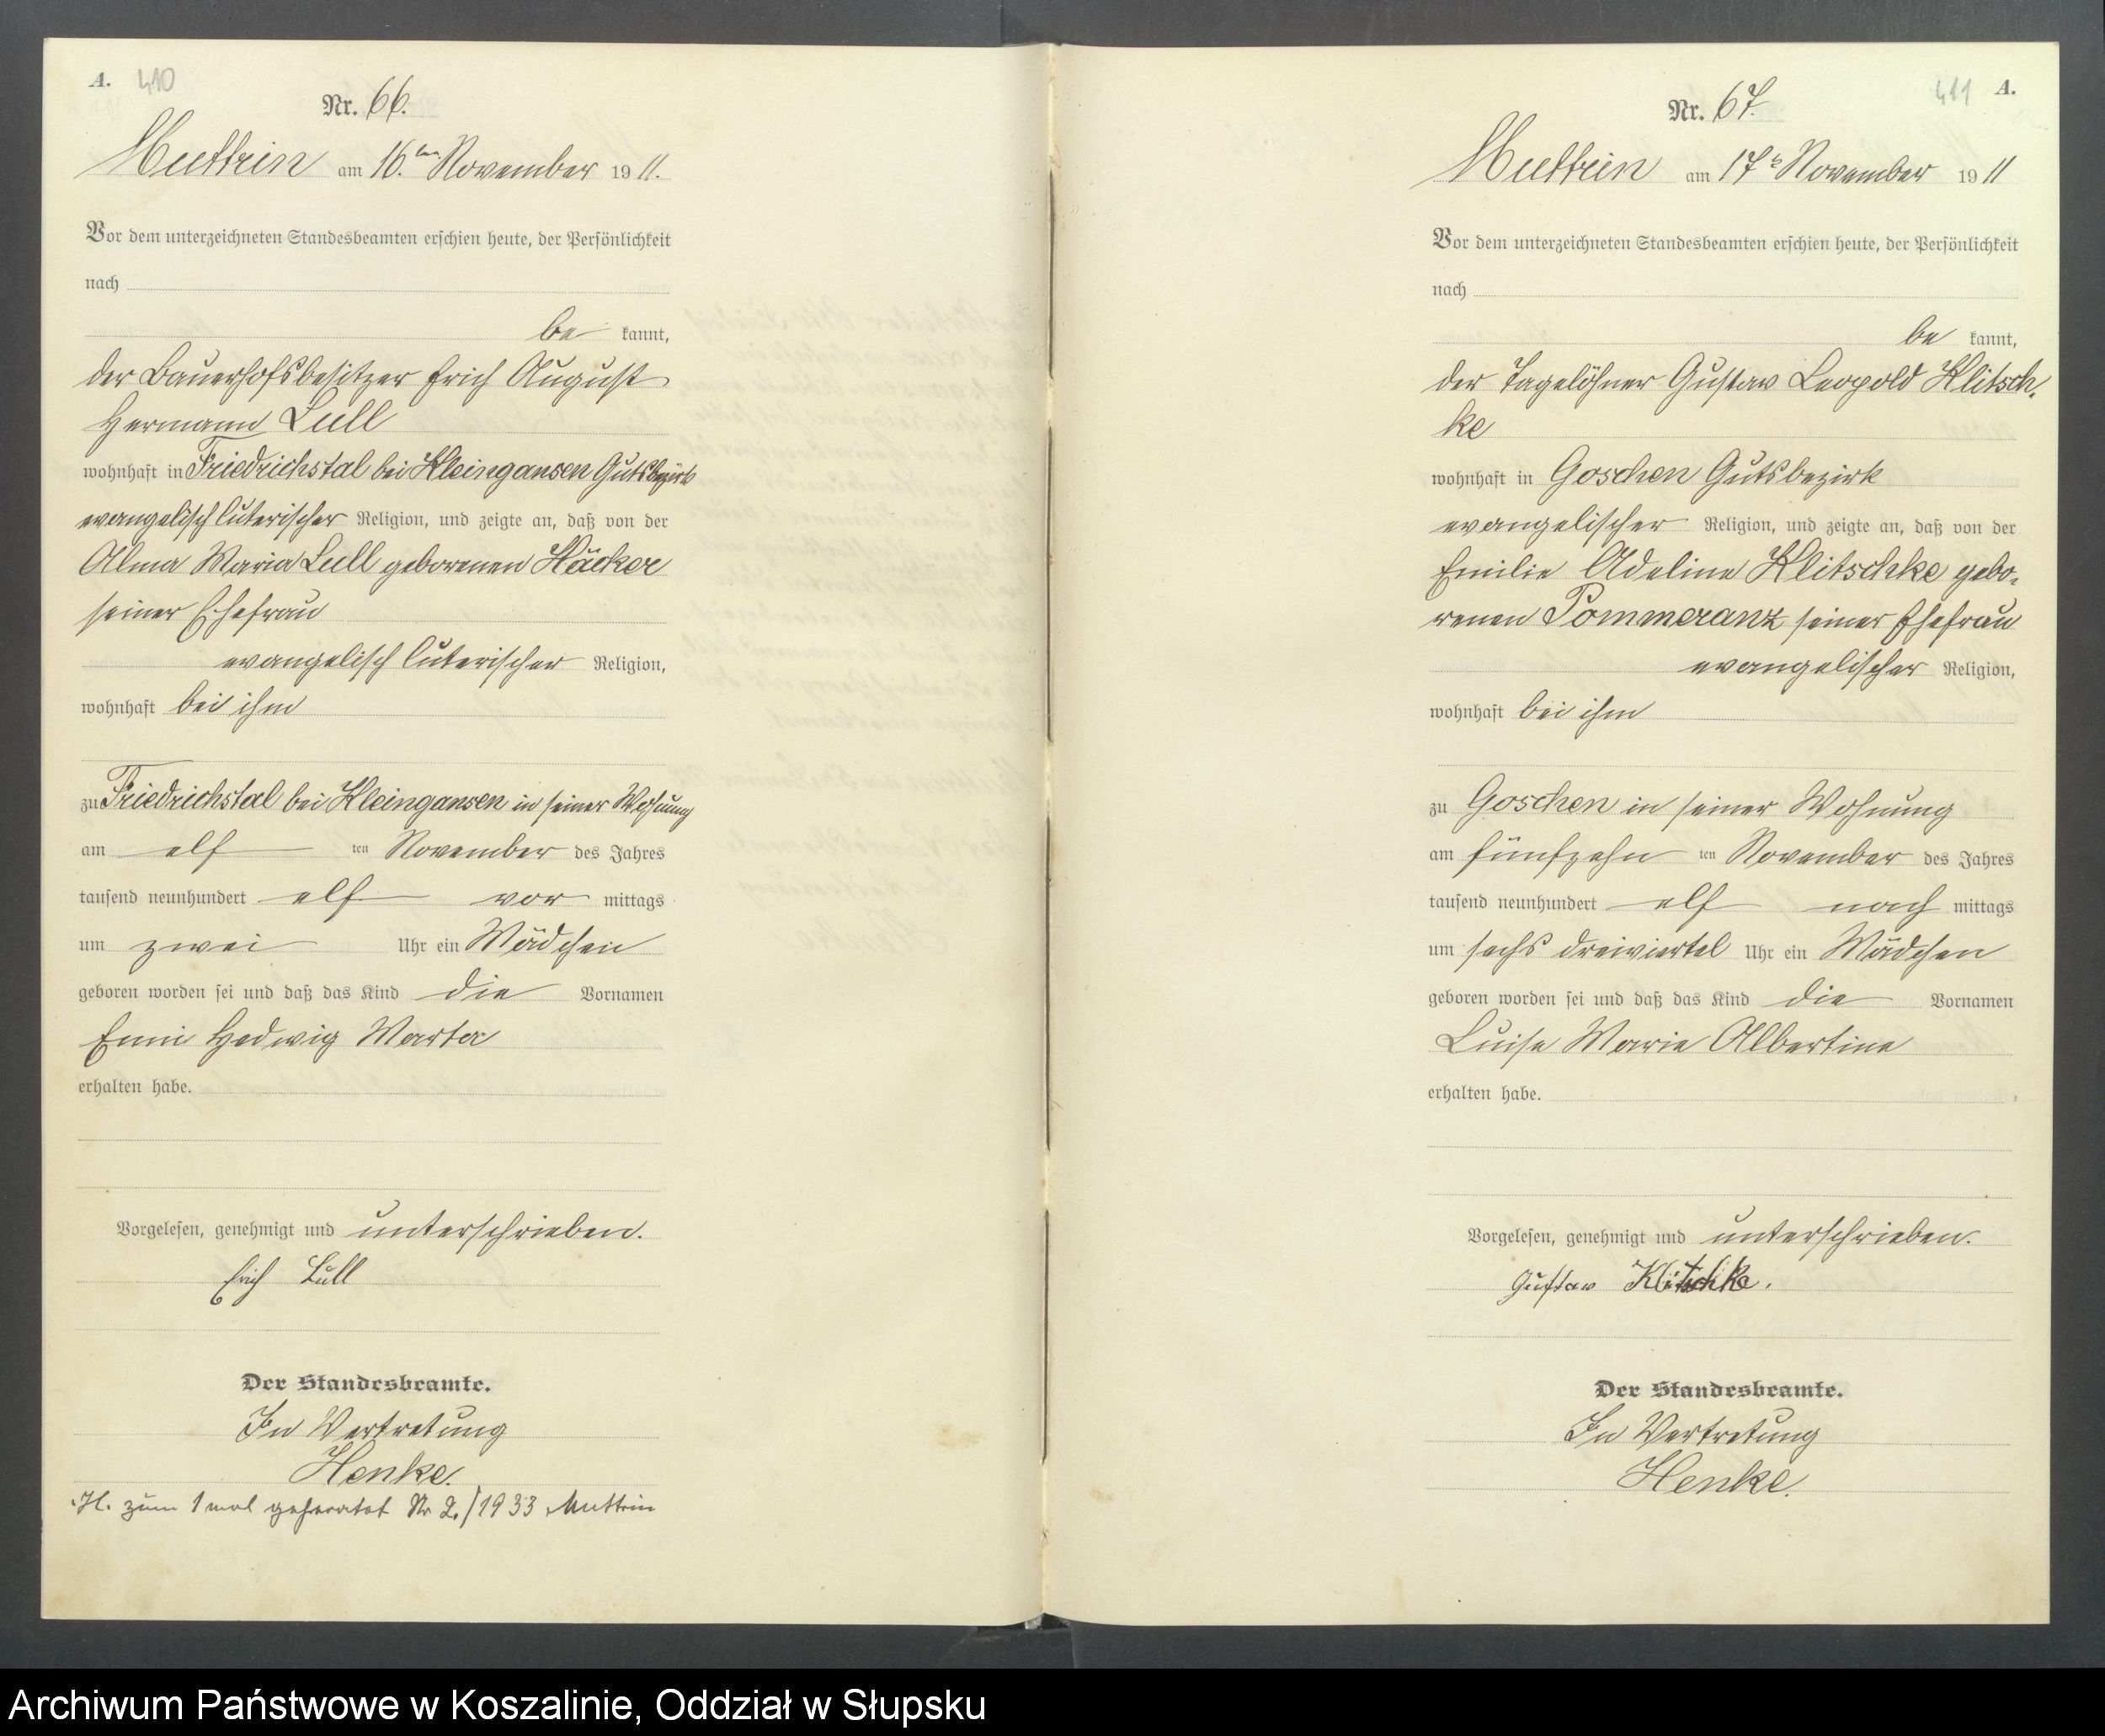 A. 410
Nr. 66.
Muttrin am 16.ten November 1911.
Vor dem unterzeichneten Standesbeamten erschien heute, der Persönlichkeit
nach
be kannt,
der Bauerhofsbesitzer Erich August
Hermann Lüll
wohnhaft in Friedrichstal bei Kleingansen Gutsbezirk
evangelisch luterischer Religion, und zeigte an, daß von der
Alma Maria Lüll geborenen Häcker
seiner Ehefrau
evangelisch luterischer Religion,
wohnhaft bei ihm
zu Friedrichstal bei Kleingansen in seiner Wohnung
am elf ten November des Jahres
tausend neunhundert elf vor mittags
um zwei Uhr ein Mädchen
geboren worden sei und daß das Kind die Vornamen
Enni Hedwig Marta
erhalten habe.
Vorgelesen, genehmigt und unterschrieben.
Erich Lüll
Der Standesbeamte.
In Vertretung
Henke.
H. zum 1 mal geheiratet Nr 2./1933 Muttrin
411 A.
Nr. 67.
Muttrin am 17t November 1911
Vor dem unterzeichneten Standesbeamten erschien heute, der Persönlichkeit
nach
be kannt,
der Tagelöhner Gustav Leopold Klitsch-
ke
wohnhaft in Goschen Gutsbezirk
evangelischer Religion, und zeigte an, daß von der
Emilie Adeline Klitschke gebo-
renen Pommeranz seiner Ehefrau
evangelischer Religion,
wohnhaft bei ihm
zu Goschen in seiner Wohnung
am fünfzehn ten November des Jahres
tausend neunhundert elf nach mittags
um sechs dreiviertel Uhr ein Mädchen
geboren worden sei und daß das Kind die Vornamen
Luise Marie Albertine
erhalten habe.
Vorgelesen, genehmigt und unterschrieben.
Gustav Klitschke.
Der Standesbeamte.
In Vertretung
Henke.
Archiwum Państwowe w Koszalinie, Oddział w Słupsku